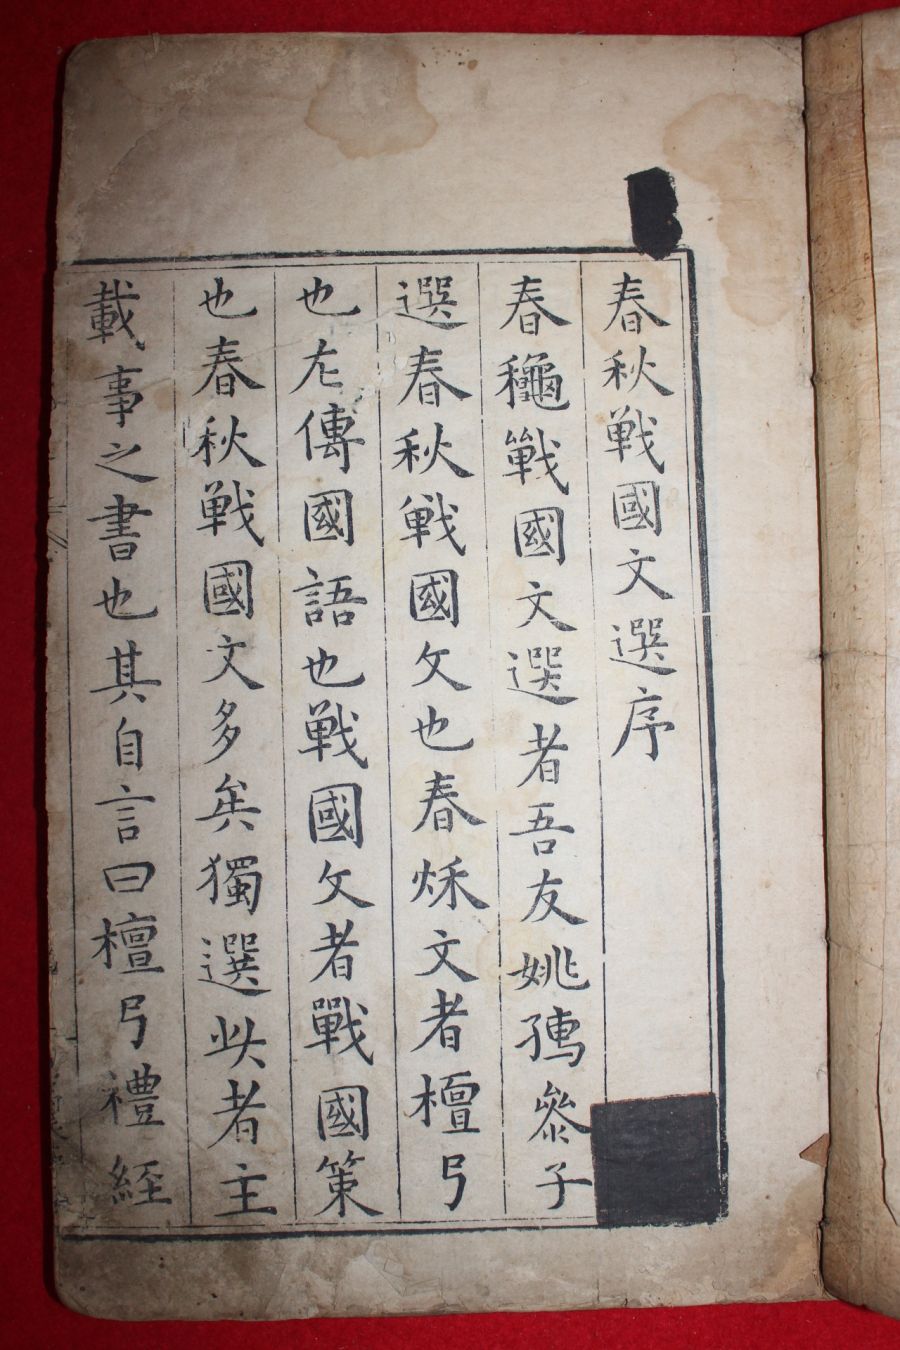 春秋戦國文選序
春龝戦國文選者吾友姚參子
選春秋戦國文也春秌文者檀弓
也左傳國語也戦國文者戰國策
也春秋戦國文多矣獨選此者主
載事之書也其自言曰檀弓禮經